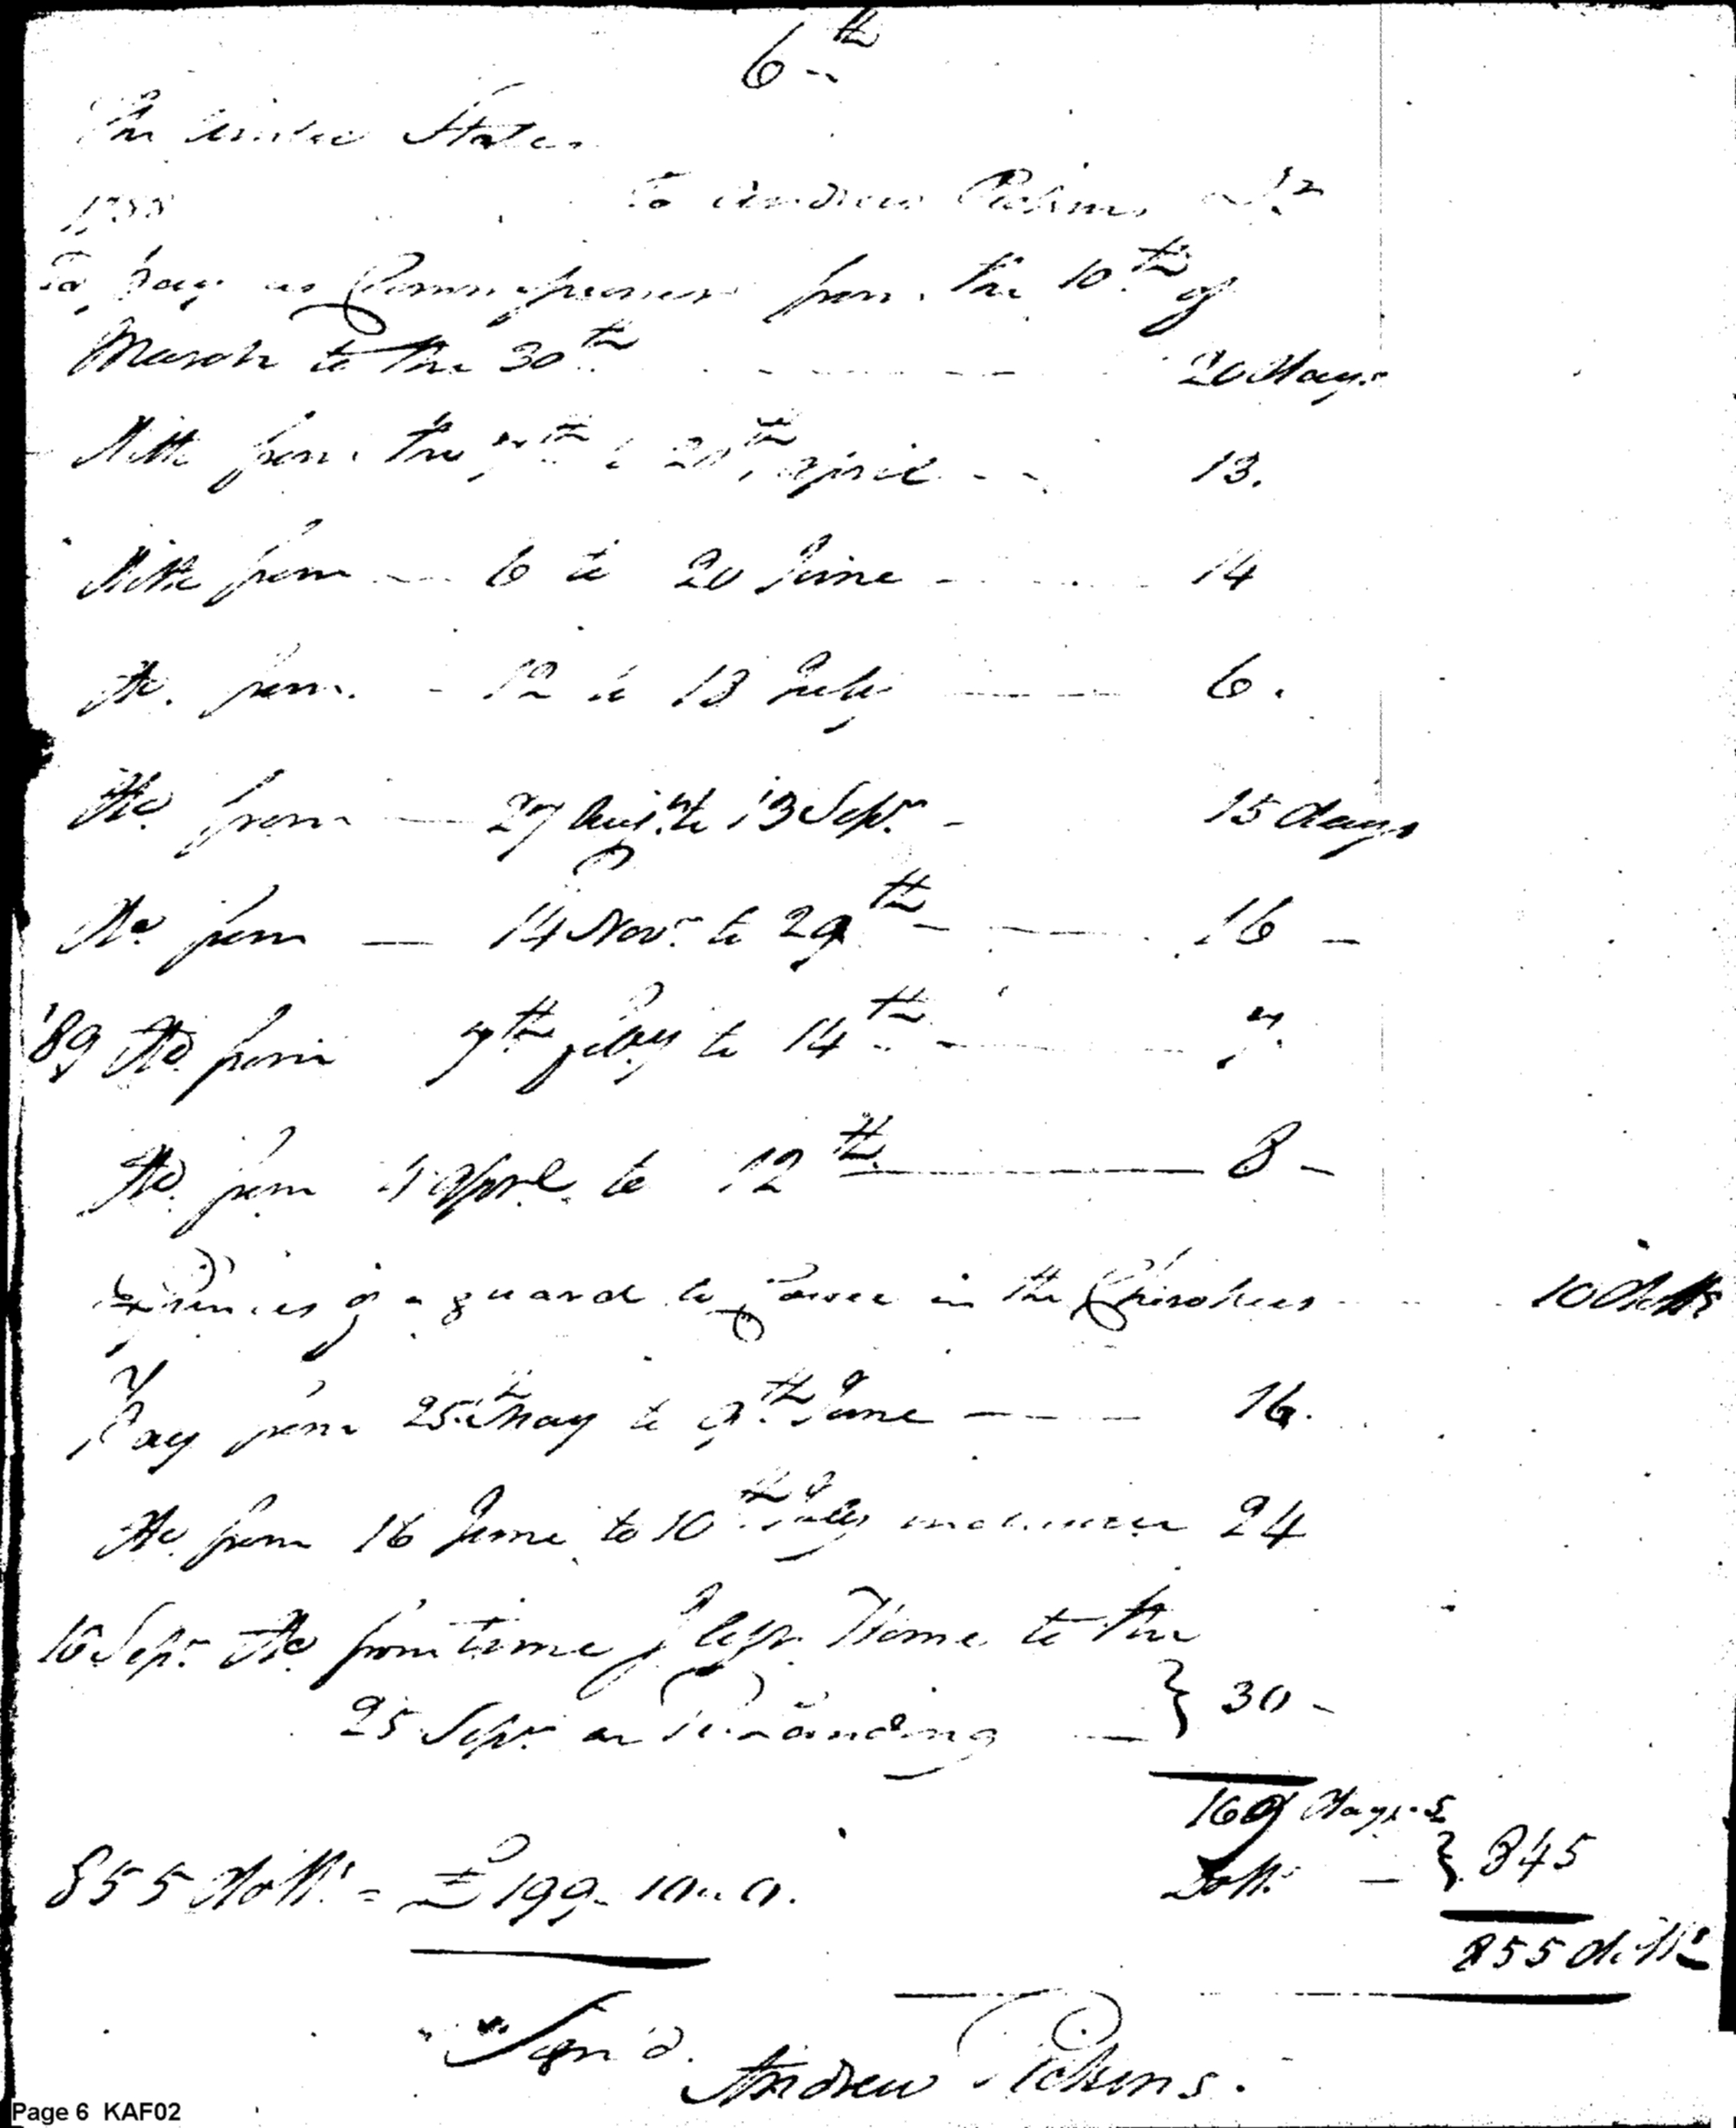 6th
The United States
1788 To Andrew Pickens Dr
To pay as Commissioner from the 10th of
March to the 30th 20 Days
Ditto from the 7th to 20th april 13.
Ditto from 6 to 20 June 14
Do. from 12 to 18 July 6.
Do. from 27 Augt. to 13 Sepr. 15 days
Do. from 14 Novr. to 29th 16
'89 Do. from 7th feby to 14th 7.
Do. from 4 aprl. to 12th 8
Expences of a guard to in the Cherokees 10 Dolls
Pay from 25th May to 9th June 16.
Do. from 16 June to 10th July inclusive 24
16 Sepr. Do. from time I left Home to the
25 Sepr. at Rock Landing } 30
169 Days
Dolls } 845
855 dolls = £199 10 0.
855 dolls
Sign'd.
Andrew Pickens.
Page 6 KAF02